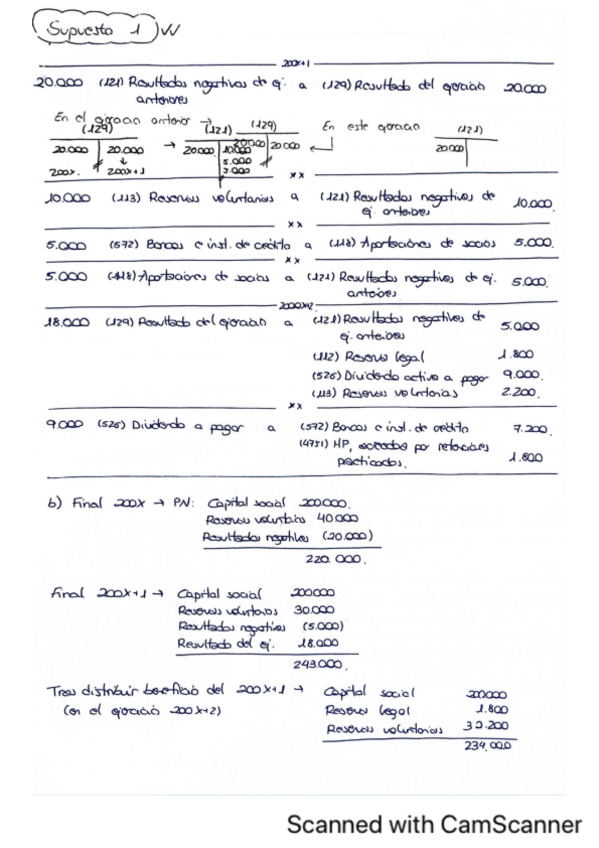 Supuesto 1
200x+1
20.000 (121) Resultados negativos de ej. a (129) Resultado del ejercicio 20.000
anteriores
En el ejercicio anterior → (121) (129) En este ejercicio (121)
(129)
20.000 20.000 → 20.000 10.000 20.000 20.000 20.000
5.000
200x. 200x+1 5.000
x x
10.000 (113) Reservas voluntarias a (121) Resultados negativos de 10.000.
ej. anteriores
x x
5.000 (572) Bancos e inst. de crédito a (118) Aportaciones de socios 5.000.
x x
5.000 (118) Aportaciones de socios a (121) Resultados negativos de ej. 5.000.
anteriores
200x+2
18.000 (129) Resultado del ejercicio a (121) Resultados negativos de 5.000
ej. anteriores
(112) Reserva legal 1.800
(526) Dividendo activo a pagar 9.000.
(113) Reservas voluntarias 2.200.
x x
9.000 (526) Dividendo a pagar a (572) Bancos e inst. de crédito 7.200.
(4751) HP, acreedora por retenciones
practicadas. 1.800
b) Final 200x → PN: Capital social 200.000.
Reservas voluntarias 40.000
Resultados negativos (20.000)
220.000.
Final 200x+1 → Capital social 200.000
Reservas voluntarias 30.000
Resultados negativos (5.000)
Resultado del ej. 18.000
243.000.
Tras distribuir beneficio del 200x+1 → Capital social 200.000
(en el ejercicio 200x+2) Reserva legal 1.800
Reservas voluntarias 32.200
234.000
Scanned with CamScanner